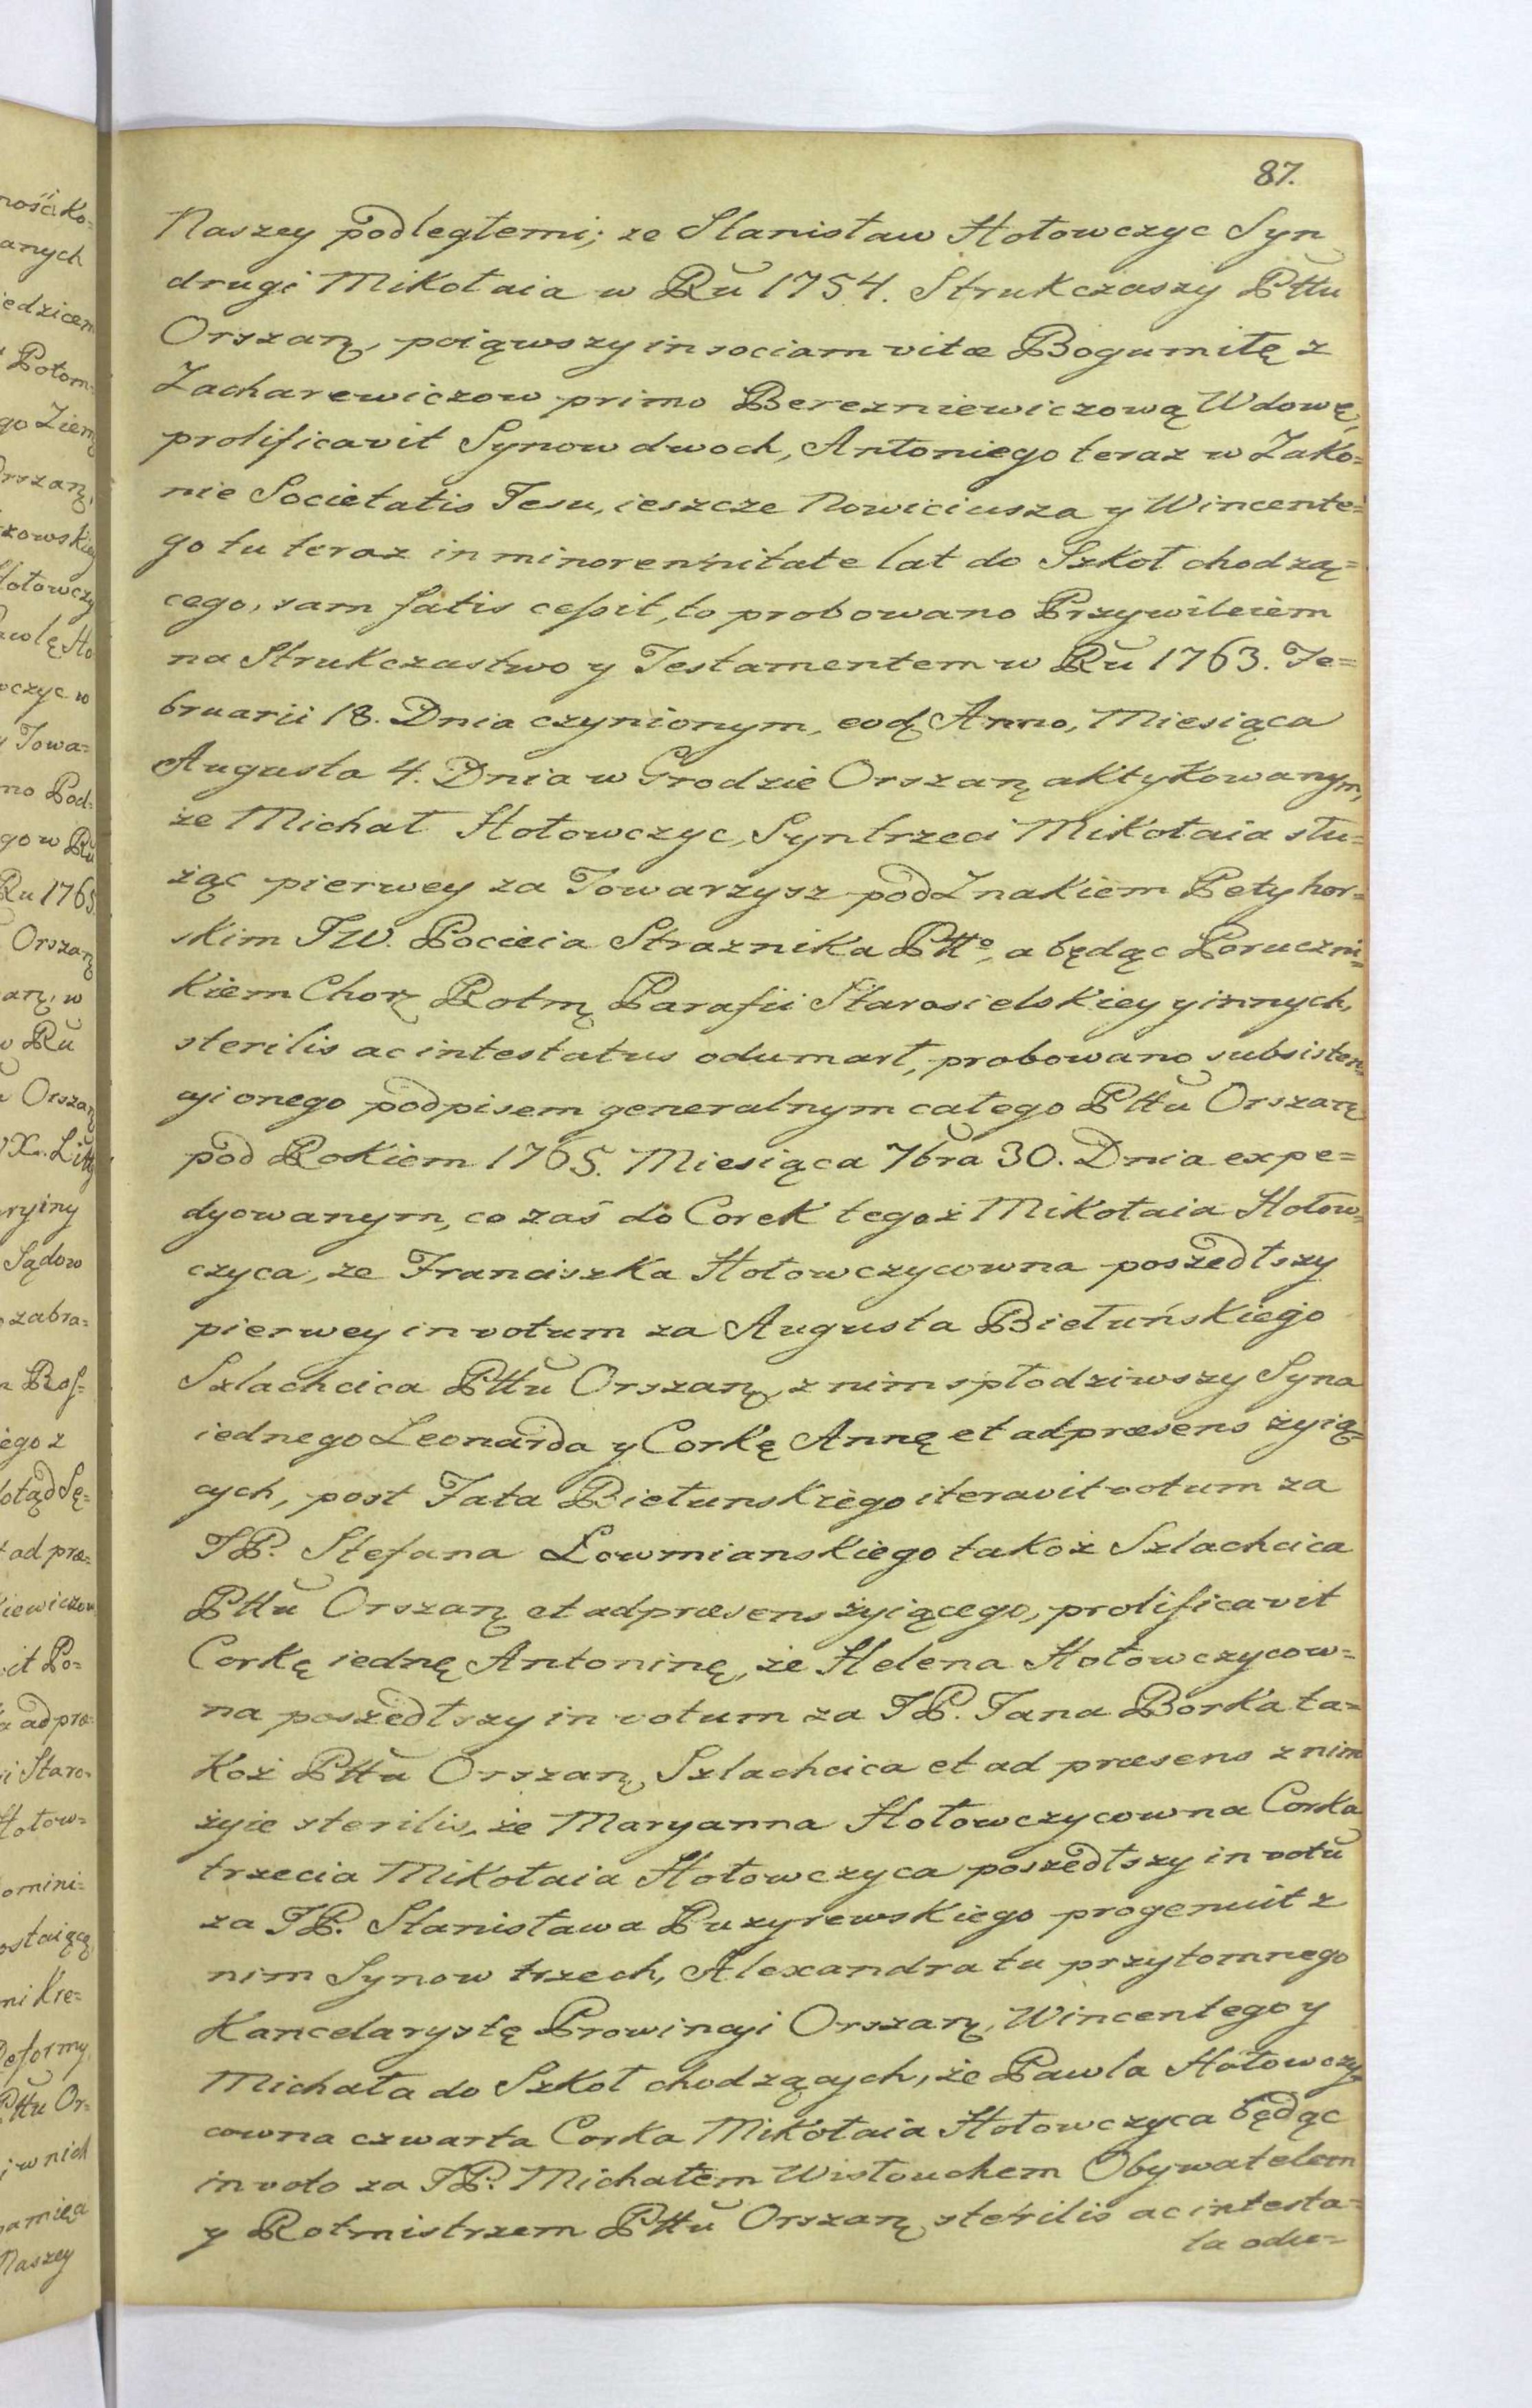 87.
Naszey podległemi; ze Stanisław Hołowczyc Syn
drugi Mikołaia w Ru 1754. Strukczaszy Pttu
Orszan, poiąwszy in sociam vitæ Bogumiłę z
Zacharewiczow primo Berezniewiczową Wdowę,
prolificavit Synow dwoch, Antoniego teraz w Zako=
nie Societatis Jesu, ieszcze Nowiciusza y Wincente=
go tu teraz in minorennitate lat do Szkoł chodzą=
cego, sam fatis cessit, to probowano Przywileiem
na Strukczastwo y Testamentem w Ru 1763. Fe=
bruarii 18. Dnia czynionym, eod. Anno, Miesiąca
Augusta 4. Dnia w Grodzie Orszan aktykowanym,
że Michał Hołowczyc, Syn trzeci Mikołaia słu=
żąc pierwey za Towarzysz pod Znakiem Petyhor=
skim JW. Pocieia Straznika Ptto, a będąc Poruczni=
kiem Chor Rotm Parafii Starosielskiey y innych,
sterilis ac intestatus odumarł, probowano subsisten=
cyi onego podpisem generalnym całego Pttu Orszan
pod Rokiem 1765. Miesiąca 7bra 30. Dnia expe=
dyowanym, co zaś do Corek tegoż Mikołaia Hołow=
czyca, ze Franciszka Hołowczycowna poszedłszy
pierwey in votum za Augusta Biełuńskiego
Szlachcica Pttu Orszan, z nim spłodziwszy Syna
iednego Leonarda y Corkę Annę et ad præsens żyią=
cych, post Fata Biełunskiego iteravit votum za
JP. Stefana Łowmianskiego takoż Szlachcica
Pttu Orszan et ad præsens żyiącego, prolificavit
Corkę iednę Antoninę, że Helena Hołowczycow=
na poszedłszy in votum za JP. Jana Borka ta=
koż Pttu Orszan Szlachcica et ad præsens z nim
żyie sterilis, że Maryanna Hołowczycowna Corka
trzecia Mikołaia Hołowczyca poszedłszy in votu
za JP. Stanisława Puzyrewskiego progenuit z
nim Synow trzech, Alexandra tu przytomnego
Kancelarystę Prowincyi Orszan, Wincentego y
Michała do Szkoł chodzących, że Pawla Hołowczy=
cowna czwarta Corka Mikołaia Hołowczyca będąc
in voto za JP. Michałem Wisłouchem Obywatelem
y Rotmistrzem Pttu Orszan sterilis ac intesta=
ta odu=